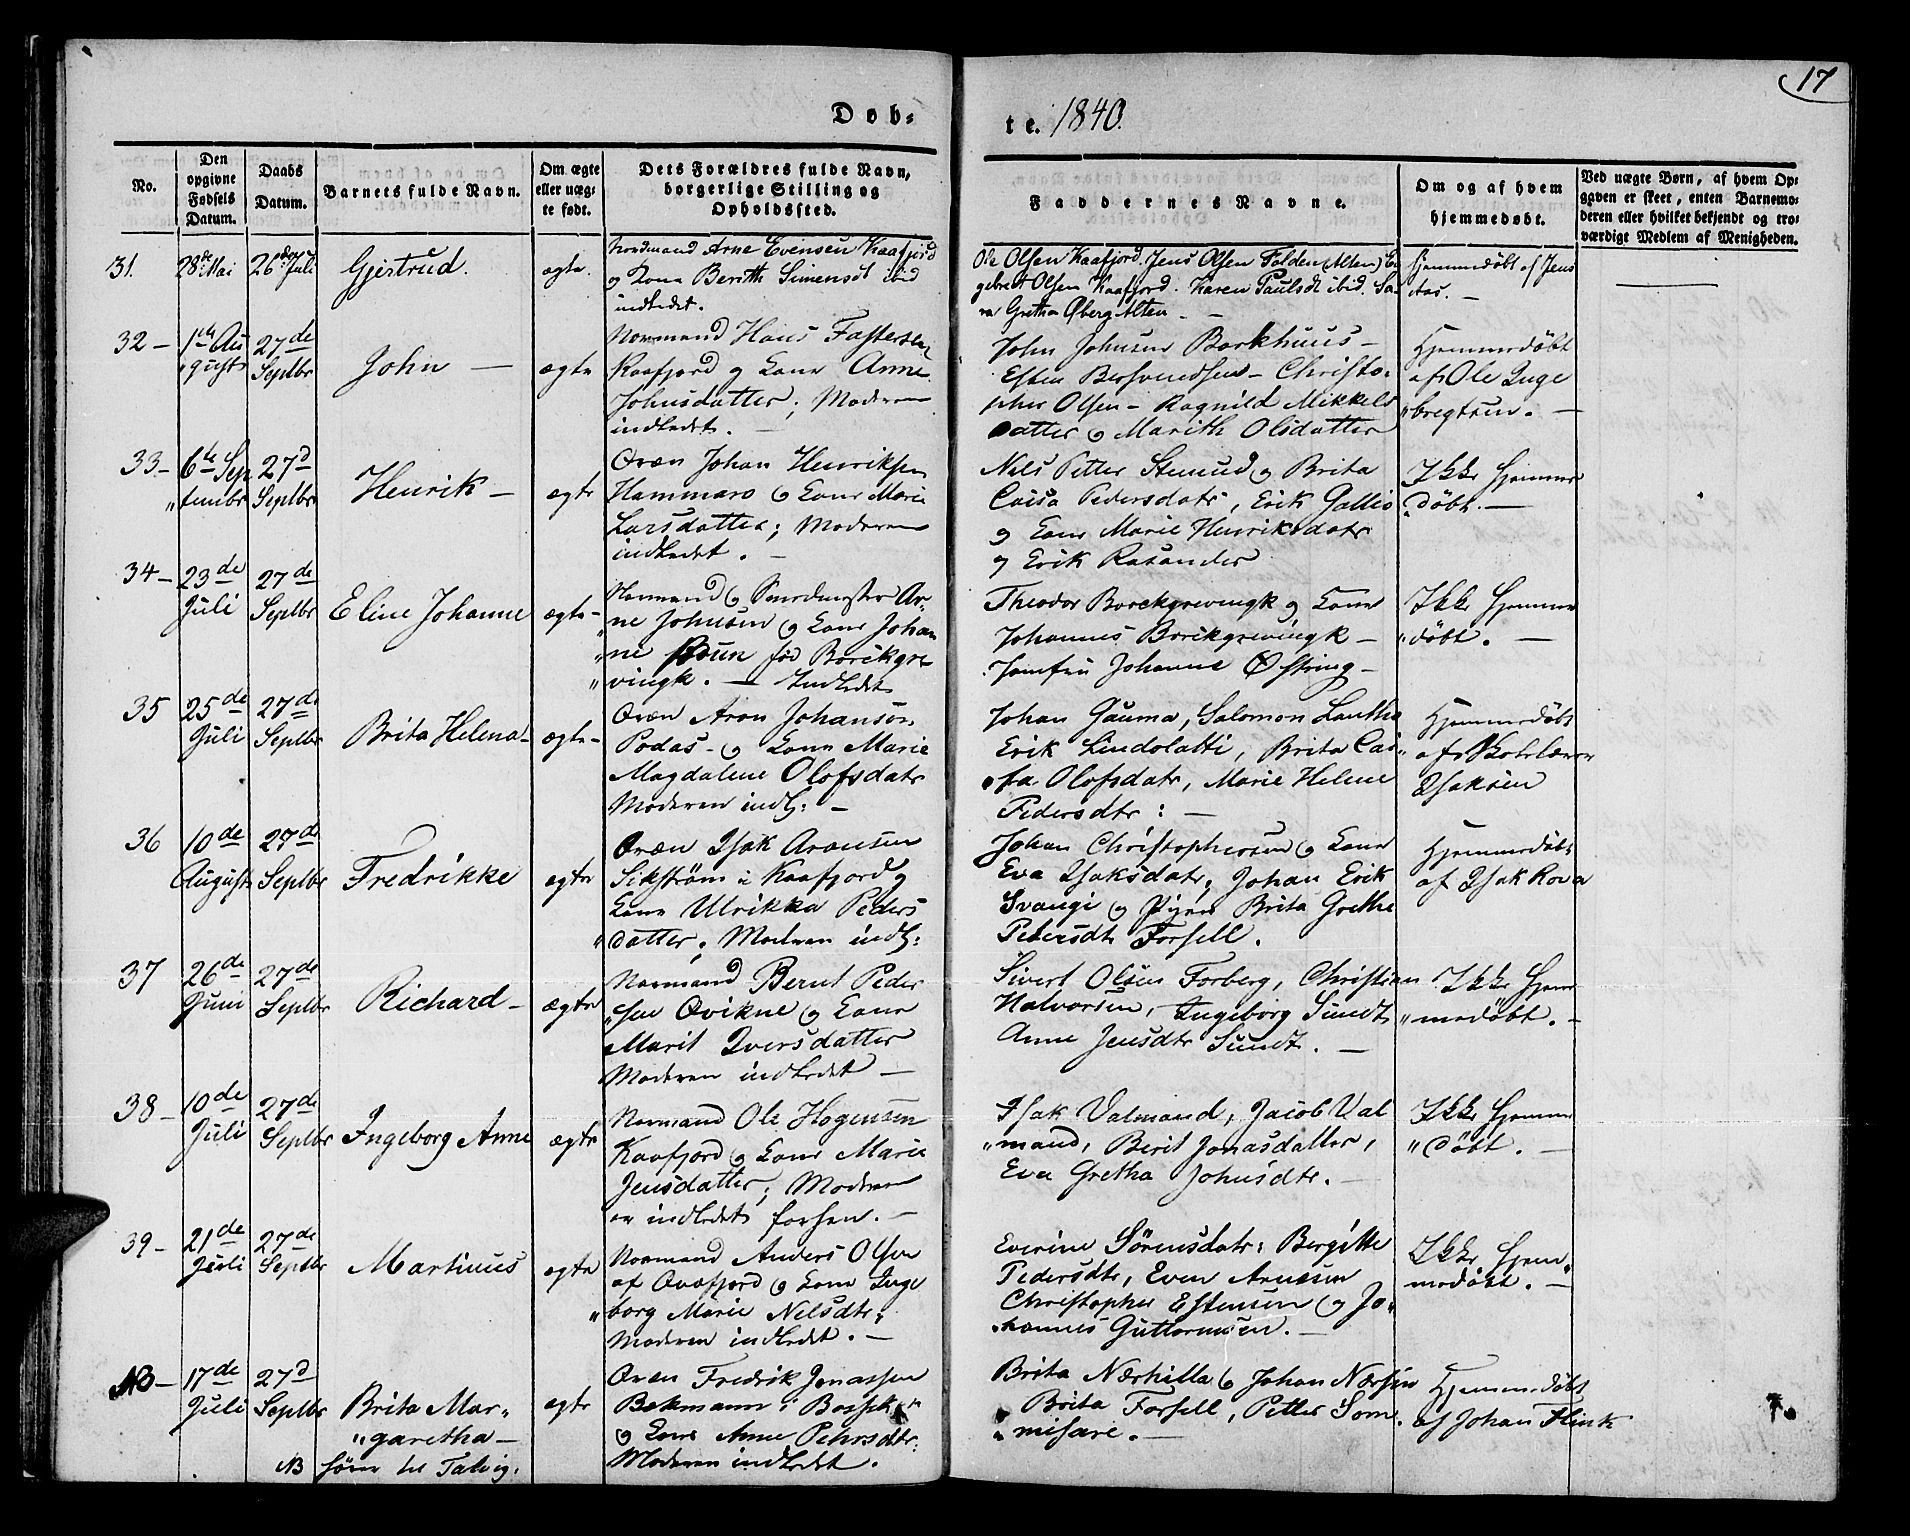 17
Døb-
te. 1840.
No.
Den opgivne Fødsels Datum.
Daabs Datum.
Barnets fulde Navn.
Om ægte eller uæg- te født.
Dets Forældres fulde Navn, borgerlige Stilling og Opholdssted.
Faddernes Navne.
Om og af hvem hjemmedøbt.
Ved uægte Børn, af hvem Op- gaven er skeet, enten Barnemo- deren eller hvilket bekjendt og tro- værdigt Medlem af Menigheden.
31. 28de Mai 26de Juli Gjertrud. ægte.
Nordmand Arne Evensen Kaafjord
og Kone Berith Simensdt ibid
indledet.
Ole Olsen Kaafjord. Jens Olsen Folden (Alten) En
gebret Olsen Kaafjord. Karen Paulsdt ibid. Sa-
ra Grethe Øberg Alten. -
hjemmedøbt af Jens
32 - 1ste Au
gusts
27de
Septbr
John - ægte
Normand Hans
Kaafjord og Kone Anne
Johnsdatter; Moderen
indledet. -
John Johnsen Barkhuus -
Esten Bersvendsen - Christo-
pher Olsen - Ragnild Mikkels
datter og Marith Olsdatter
Hjemmedøbt
af Ole Inge
"bregtsen. -
33 - 6te Sep
"tembr
27d
Septbr
Henrik - ægte
Qvæn Johan Henriksen
Hammaro og Kone Maria
Larsdatter; Moderen
indledet. -
Nils Petter Stenud og Brita
Caisa Pedersdatr, Erik Gallio
og Kone Marie Henriksdatr
og Erik Rasander
Ikke Hjemme
døbt. -
34 - 23de
Juli
27de
Septbr
Eline Johanne ægte -
Normand og Smedmester Ar-
ne Johnsen og Kone Johan
"ne Bruun fød Borckgre
"vingk. - Indledet
Theodor Borckgrevingk og Kone
Johannes Borckgrevingk -
Jomfru Johanne Østring -
Ikke Hjemme
"døbt. -
35 25de
Juli
27de
Septbr
Brita Helena - ægte -
Qvæn Aron Johanson
Podas - og Kone Marie
Magdalene Olofsdatr
Moderen indl: -
Johan Gauma, Salomon Lantha
Erik Lindolatti, Brita Cai-
"sa Olofsdatr, Marie Helene
Pedersdtr: -
Hjemmedøbt
af Skolelærer
Isaksen
36 10de
August
27de
Septbr
Fredrikke ægte
Qvæn Isak Aronsen
Sikström i Kaafjord og
Kone Ulrikka Peders
"datter. Moderen indl:
Johan Christophersen og Kone
Eva Isaksdatr, Johan Erik
Svangi og Pigen Brita Grethe
Petersdt Forsell.
Hjemmedøbt
af Isak Rova
37 26de
Juni
27de
Septbr
Richard - ægte
Normand Bernt Peder
"sen Qvikne og Kone
Marit Iversdatter
Moderen indledet -
Sivert Olsen Forberg, Christian
Halvorsen, Ingeborg Sundt
Anne Jensdtr Sundt. -
Ikke Hjem
"medøbt. -
38 - 10de
Juli
27de
Septbr
Ingeborg Anne ægte
Normand Ole Hagensen
Kaafjord og Kone Marie
Jensdatter; Moderen
er indledet forhen. -
Isak Valmand, Jacob Val
"mand, Berit Jonasdatter,
Eva Gretha Johnsdtr. -
Ikke Hjemme
"døbt. -
39 - 21de
Juli
27de
Septbr
Martinus ægte
Normand Anders Olsen
af Qvafjord og Kone Inge
"borg Marie Nelsdtr;
Moderen indledet. -
Everine Sörensdatr: Bergitte
Pedersdtr, Even Arnesen
Christopher Estensen og Jo-
"hannes Guttormsen. -
Ikke Hjem-
medøbt. -
NB - 17de
Juli
27d
Septbr
Brita Mar-
"garetha -
NB hører til Talvig.
ægte
Qvæn Fredrik Jonassen
Bekmann i Bossek-
og Kone Anne Pehrsdtr:
Moderen indledet.
Brita Nærhilla og Johan Nærsen
Brita Forsell, Petter Som
"misare. -
Hjemmedøbt
af Johan Flink